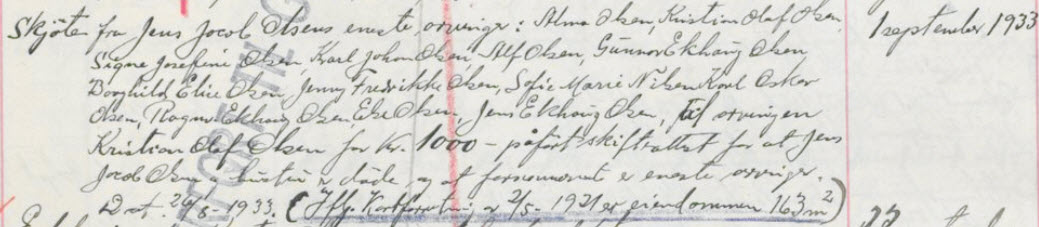 Skjøte fra Jens Jacob Olsens eneste arvinger: Alma Olsen, Kristian Olaf Olsen, 1 september 1933
Signe Josefine Olsen, Karl Johan Olsen, Alf Olsen, Gunnor Ekhaug Olsen
Borghild Elise Olsen, Jenny Fredrikke Olsen, Sofie Marie Nilsen Karl Oskar
Olsen, Ragnv Ekhaug Olsen, Else Olsen, Jens Ekhaug Olsen, til arvingen
Kristian Olaf Olsen for kr. 1000 – påført skifteattest for at Jens
Jacob Olsen og hustru er døde, og at forannevnte er eneste arvinger.
Dat. 26/8 - 1933. (Ifflg. Kartforretning av 2/5 - 1921 er eiendommen 163 m²)